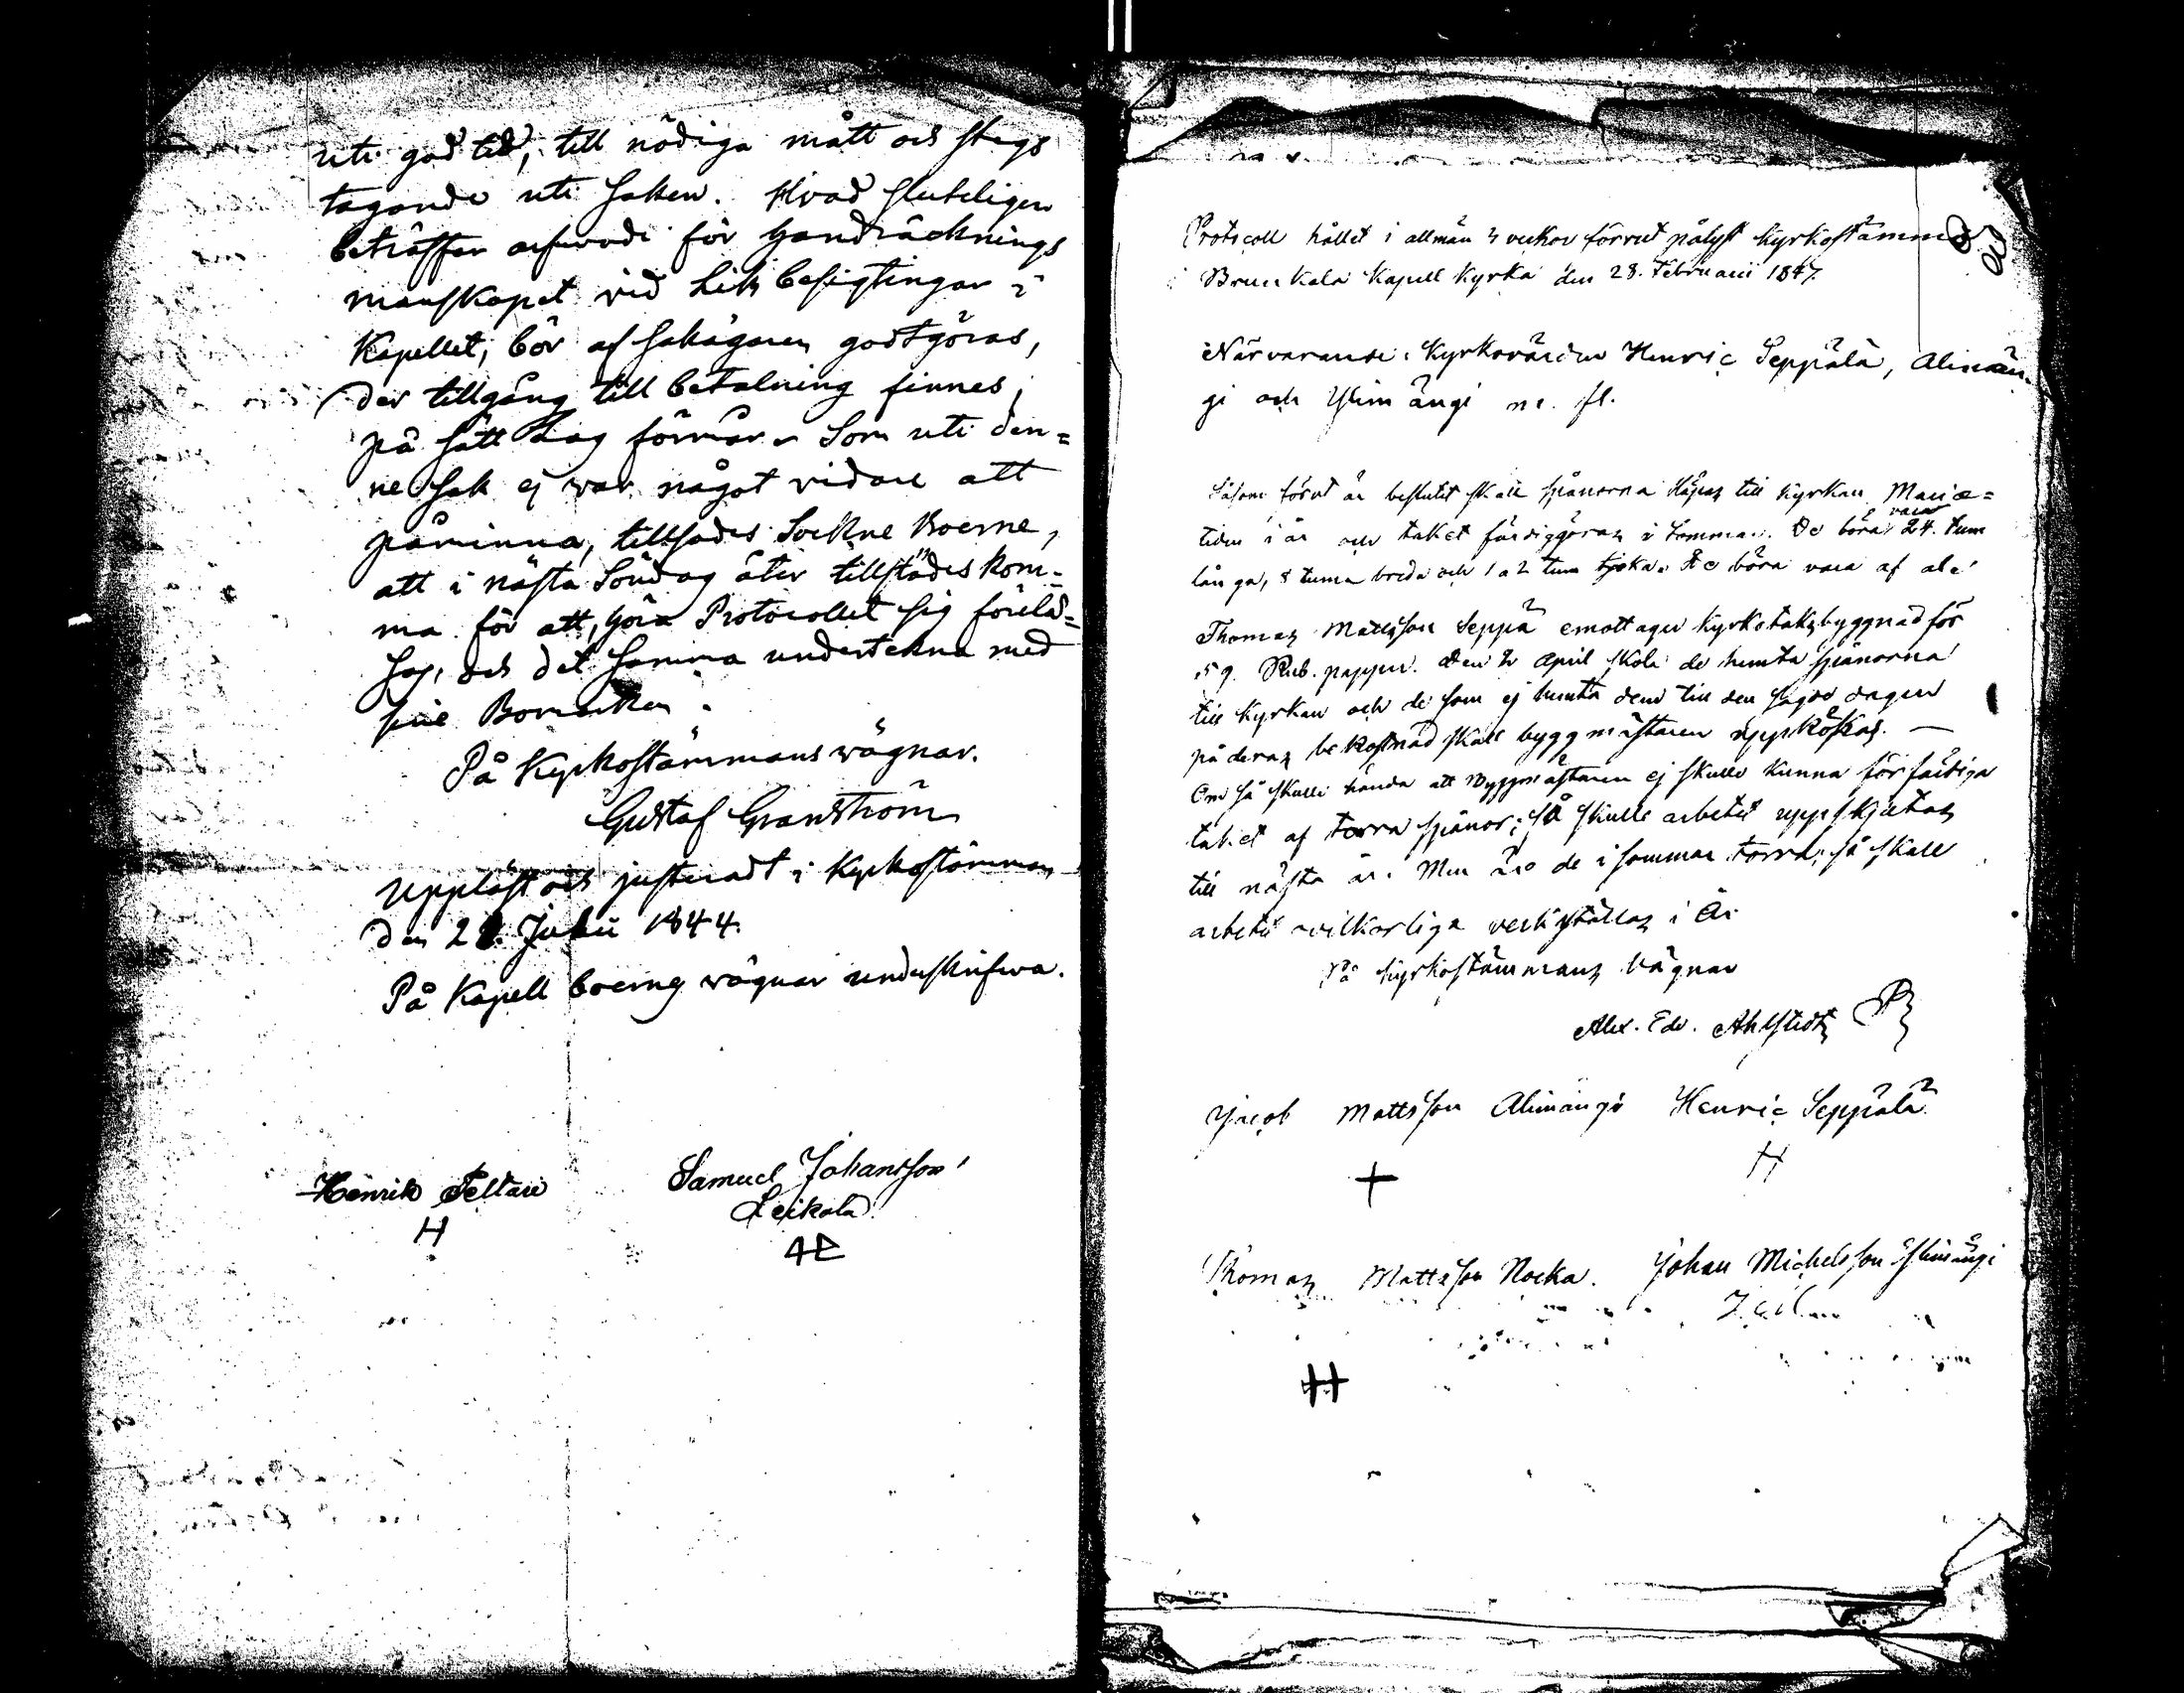 uti god tid, till nödiga mått och stegs
tagande uti saken. Hvad sluteligen
beträffar arfwode för handräcknings
manskapet vid Lik besigtingar i
Kapellet, bör af sakägaren godtgöras,
der tillgång till betalning finnes,
på sätt Lag förmår. Som uti den=
ne sak ej war något vidare att
påminna, tillsades Sockne Boerne,
att i nästa Söndag åter tillstädes kom=
ma för att, höra Protocollet sig föreläs=
sas, och det samma underteckna med
sine Bomärken.
På Kyrkostämmans wägnar.
Gustaf Granström
Uppläst och justeradt i Kyrkostämman
den 21. Julii 1844.
På Kapell boerns wägnar underskrifwa.
Henrik Peltari
H
Samuel Johansson
Leikola
Protocoll hållet i allmän 3 veckor förrut pålyst kyrkostämma
i Brunkala Kapell Kyrka den 28. Februarii 1847.
Närvarande: Kyrkovärden Henric Seppälä, Alimän-
gi och Ylimängi m. fl.
Såsom förut är beslutet skall spånorna släpas till kyrkan Mariæ=
tiden i år och taket färdiggöras i Sommar. De böra vara 24. tum
långa, 8 tum breda och 1 a 2 tum tjocka. De böra vara af al.
Thomas Mattsson Seppä emottager kyrkotaks byggnad för
59. Rub. papper. Den 2 April skola de hemta spånorna
till kyrkan och de som ej hemta dem till den sagde dagen
på deras bekostnad skall byggmästaren uppköpas. —
Om så skulle hända att Byggmästaren ej skulle kunna förfärdiga
taket af torra spånor; så skulle arbetet uppskjutas
till nästa år. Men äro de i sommar torra, så skall
arbetet ovilkorliga verkställas i År.
På Kyrkostämmans Vägnar
Alex. Edv. Ahlstedt
Jacob Mattsson Alimängi Henric Seppälä
H
Thomas Mattsson Nocka. Johan Michelsson Ylimängi